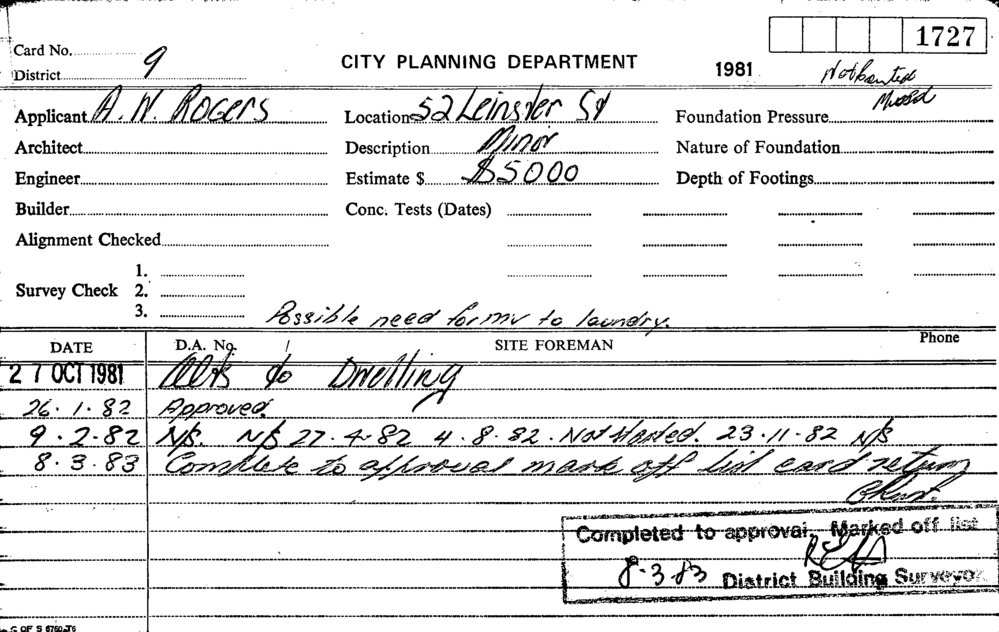 1727
Card No. 9
CITY PLANNING DEPARTMENT
1981
District
Applicant A. N. ROGERS
Location 52 Leinster St
Foundation Pressure
Architect
Description Minor
Nature of Foundation
Engineer
Estimate $ $5000
Depth of Footings
Builder
Conc. Tests (Dates)
Alignment Checked
1.
Survey Check 2.
3.
Possible need for mv to laundry.
DATE D.A. No. SITE FOREMAN Phone
27 OCT 1981 Alts to Dwelling
26.1.82 Approved.
9.2.82 N/S. N/S 27.4.82 4.8.82. Not started. 23.11.82 N/S
8.3.83 Complete to approval mark off list card return
Completed to approval. Marked off list
8.3.83 District Building Surveyor.
G OF S 6760-T6